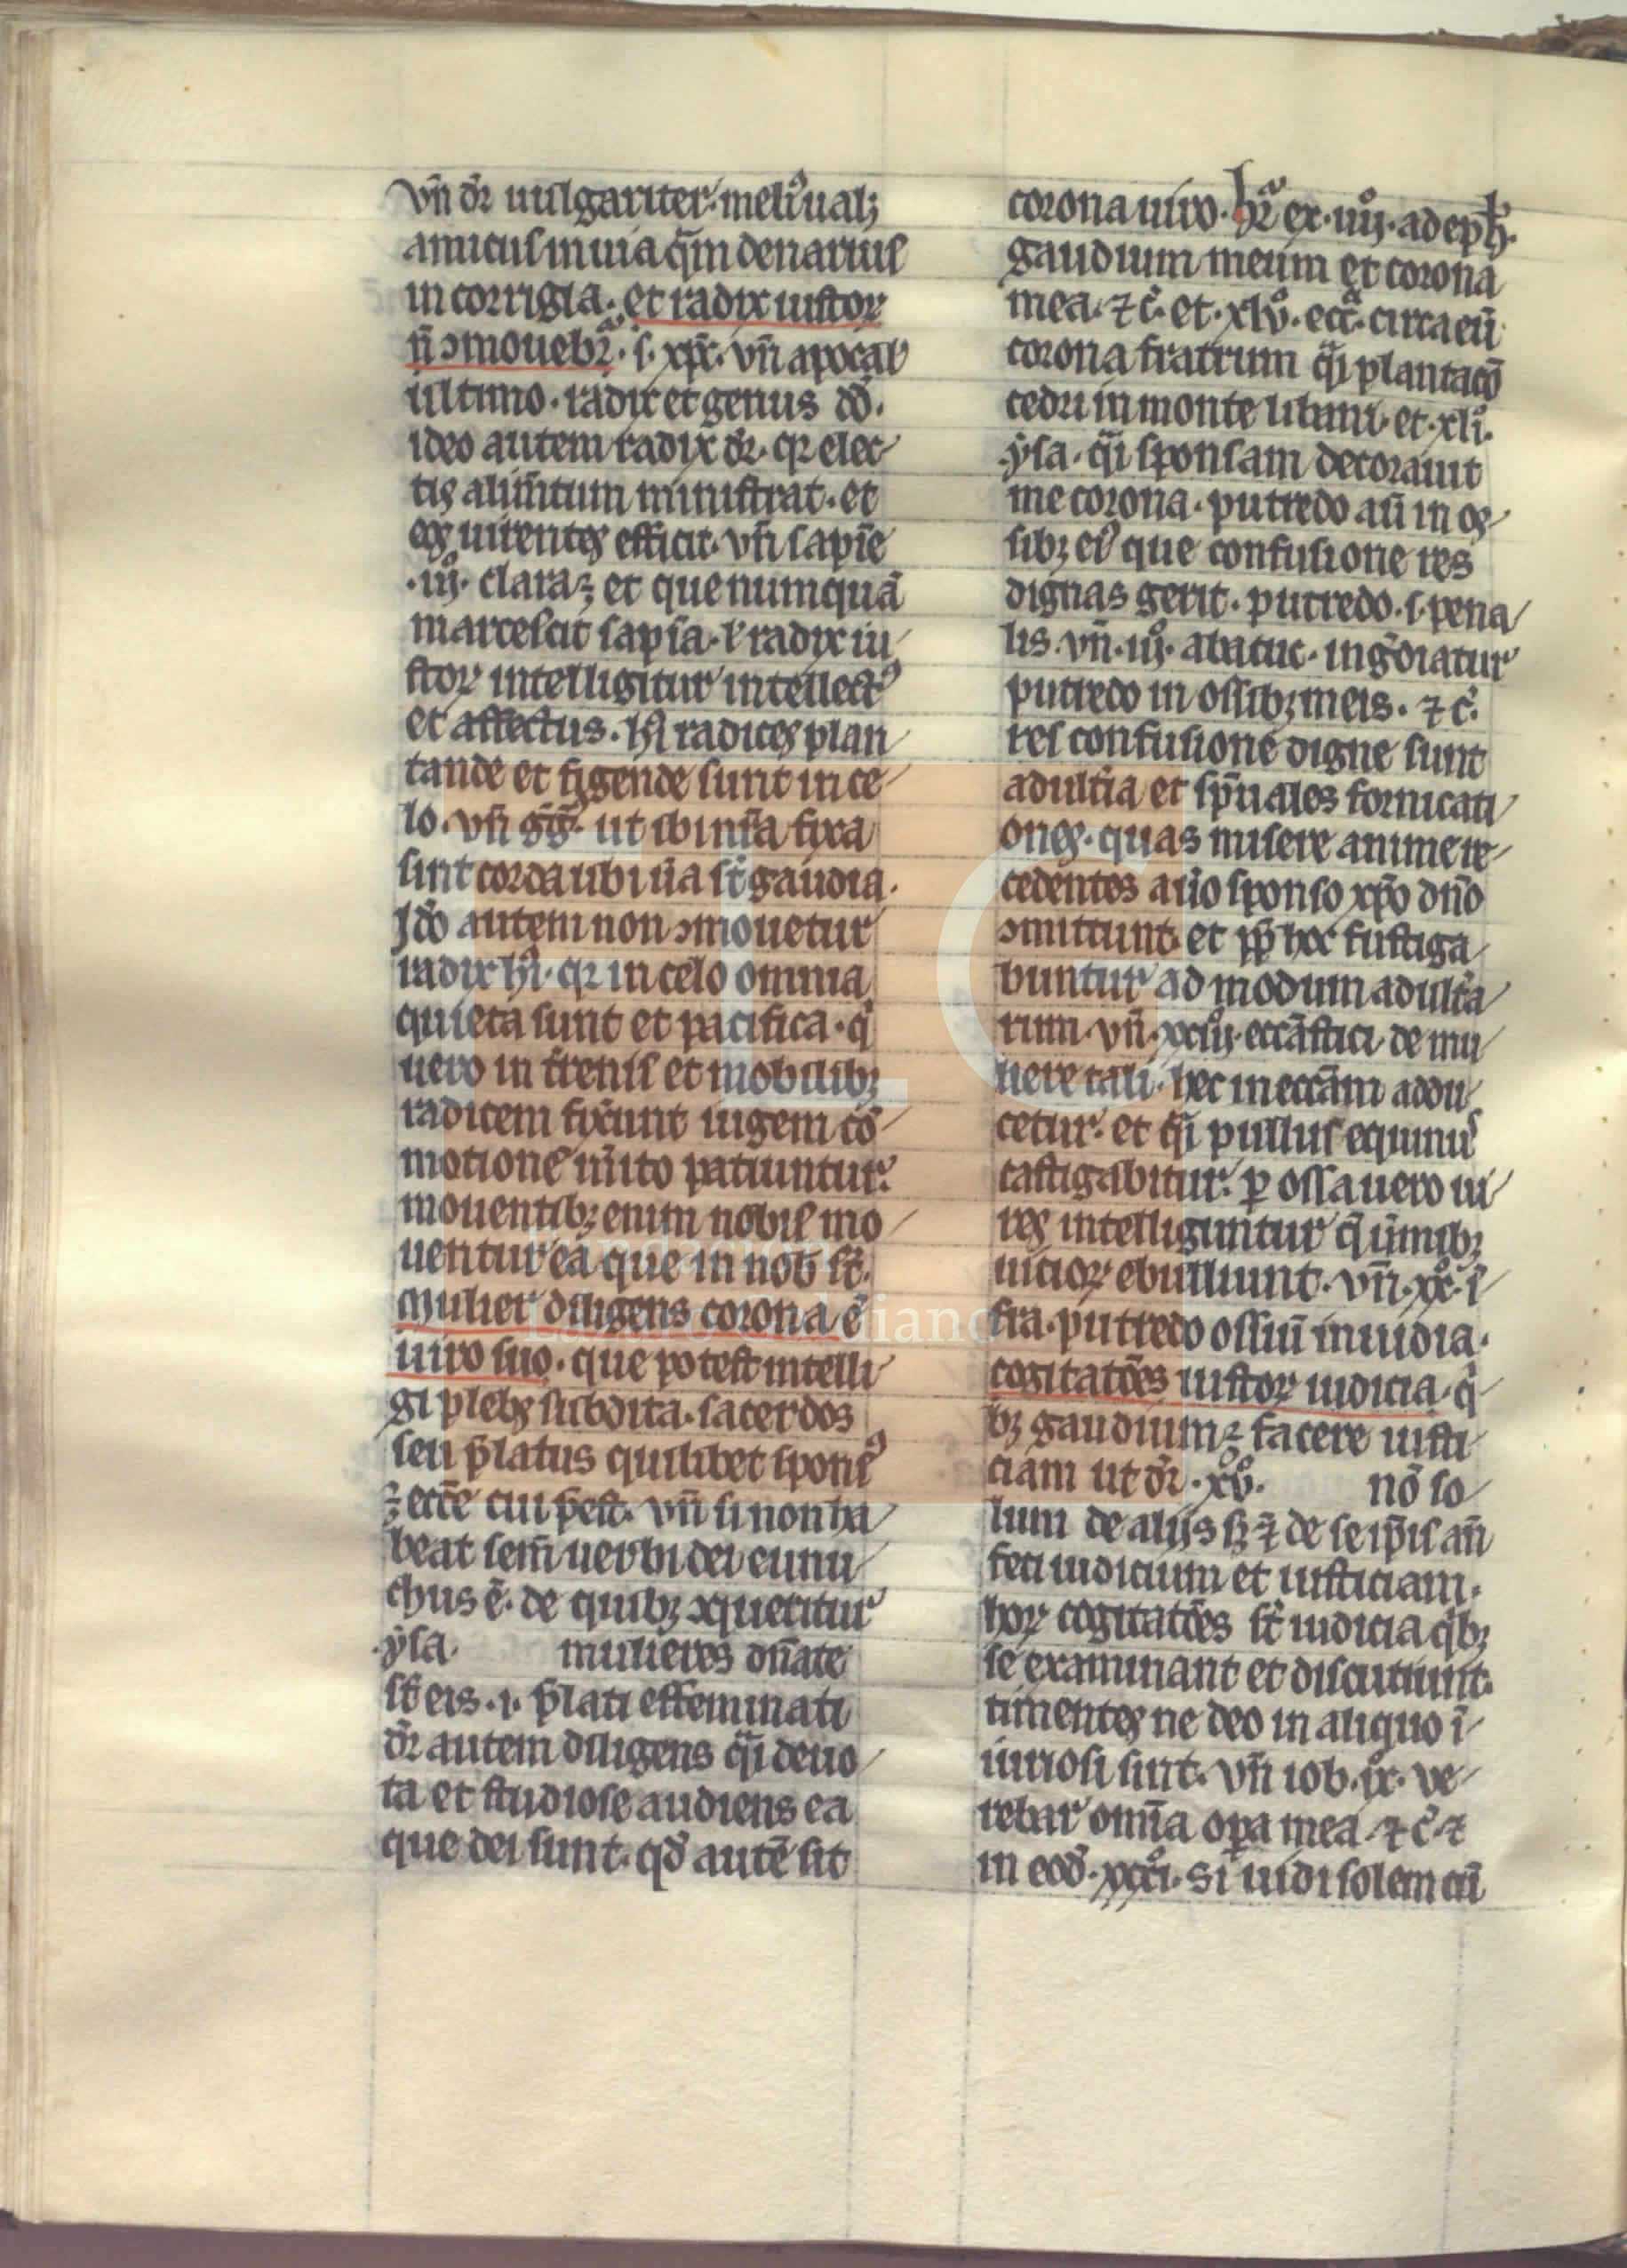 vn̄ dr̄ uulgariter. meli᷒ ualꝫ
amicus in uia qͣm denarius
in corrigia. et radix iustoꝝ
n̄ ꝯmouebr̄. s. xp̄c. vn̄ apocal
ultimo. radix et genus dd̄.
ideo autem radix dr̄. qꝛ elec
tis alim̄tum ministrat. et
eos uirentes efficit. vn̄ sapīe
.iijͦ. clara ꝫ et que numquā
marcescit sapīa. ł radix iu
stoꝝ intelligitur intellect᷒
et affectus. h᷒i radices plan
tande et figende sunt in ce
lo. vn̄ gḡ. ut ibi nr̄a fixa
sint corda ubi ūa st̄ gaudia.
Jdō autem non ꝯmouetur
radix h᷒i. qꝛ in celo omnia
quieta sunt et pacifica. qͥ
uero in tr̄enis et mobilibꝫ
radicem fix̄unt iugem cō
motionē m̄ito patiuntur.
mouentibꝫ enim nobis mo
uentur ea que in nob̄ st̄.
Mulier diligens corona ē
uiro suo. que potest intelli
gi plebs subdita. sacerdos
seu p̄latus quilibet spons᷒
ꝫ eccē cui p̄est. vn̄ si non ha
beat sem̄ uerbi dei eunu
chus ē. de quibꝫ ꝯqueritur
.ysa. mulieres dn̄ate
st̄ eis. i. p̄lati effeminati
dr̄ autem diligens qͣi deuo
ta et studiose audiens ea
que dei sunt. qd̄ autē sit
corona uiro. hr̄ ex .iiijͦ. ad eph̄.
gaudium meum et corona
mea. ⁊ c̄. et .xlvͦ. ecc̄. circa eū
corona fratrum qͣi plantacō
cedri in monte libani. et .xliͦ.
.ysa. qͣi sponsam decorauit
me corona. putredo aū in os
sibꝫ ei᷒ que confusione res
dignas gerit. putredo .s. pena
lis. vn̄ .iijͦ. abacuc. ingr̄diatur
putredo in ossibꝫ meis. ⁊ c̄.
res confusione digne sunt
adult̄ia et sp̄uales fornicati
ones. quas misere anime re
cedentes a uō sponso xp̄o dn̄o
ꝯmittunt. et pp̄ hoc fustiga
buntur ad modum adult̄a
rum. vn̄ .xxiijͦ. ecc̄astici. de mu
liere tali. hec in ecc̄am addu
cetur. et qͣi pullus equinus
castigabitur. ꝑ ossa uero ui
res intelliguntur qͥ in̄mibꝫ
uicioꝝ ebulliunt. vn̄ .xxͦ. ī
fra. putredo ossiū inuidia.
cogitatōes iustoꝝ iudicia. qͥ
bꝫ gaudium ꝫ facere iusti
ciam ut dr̄ .xvͦ. nō so
lum de alijs sꝫ ⁊ de seip̄is an̄
feci iudicium et iusticiam.
hoꝝ cogitatōes st̄ iudicia qͥbꝫ
se examinant et discutiunt.
timentes ne deo in aliquo ī
iuriosi sint. vn̄ iob .ixͦ. ve
rebar om̄ia oꝑa mea. ⁊ c̄. ⁊
in eod̄ .xxxiͦ. si uidi solem cū